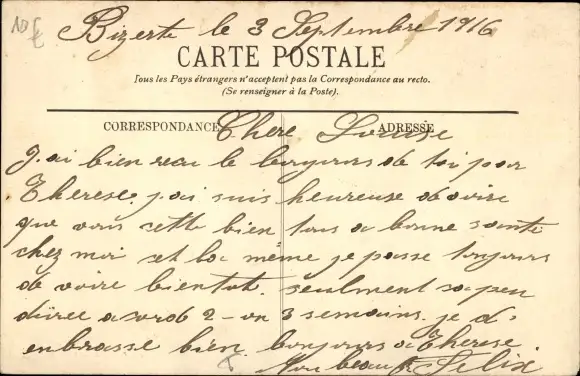 10 €
Bizerte le 3 Septembre 1916
CARTE POSTALE
Tous les Pays étrangers n'acceptent pas la Correspondance au recto.
(Se renseigner à la Poste).
CORRESPONDANCE ADRESSE
Chere Louise
J'ai bien recu le bonjours de toi pour
Therese. j'ai suis heureuse de voire
que vous cette bien tous a bonne sante
chez moi cet la même je passe toujours
de voire bientot. seulment sa peu
durée a 2 - ou 3 semains. je d'
enbrasse bien. bonjours a Therese.
Ton beau Felix